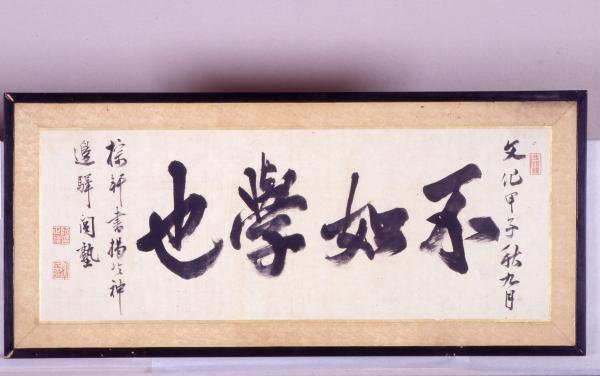 文化甲子秋九月
不如學也
棕軒書揚於神
邊驛閭塾